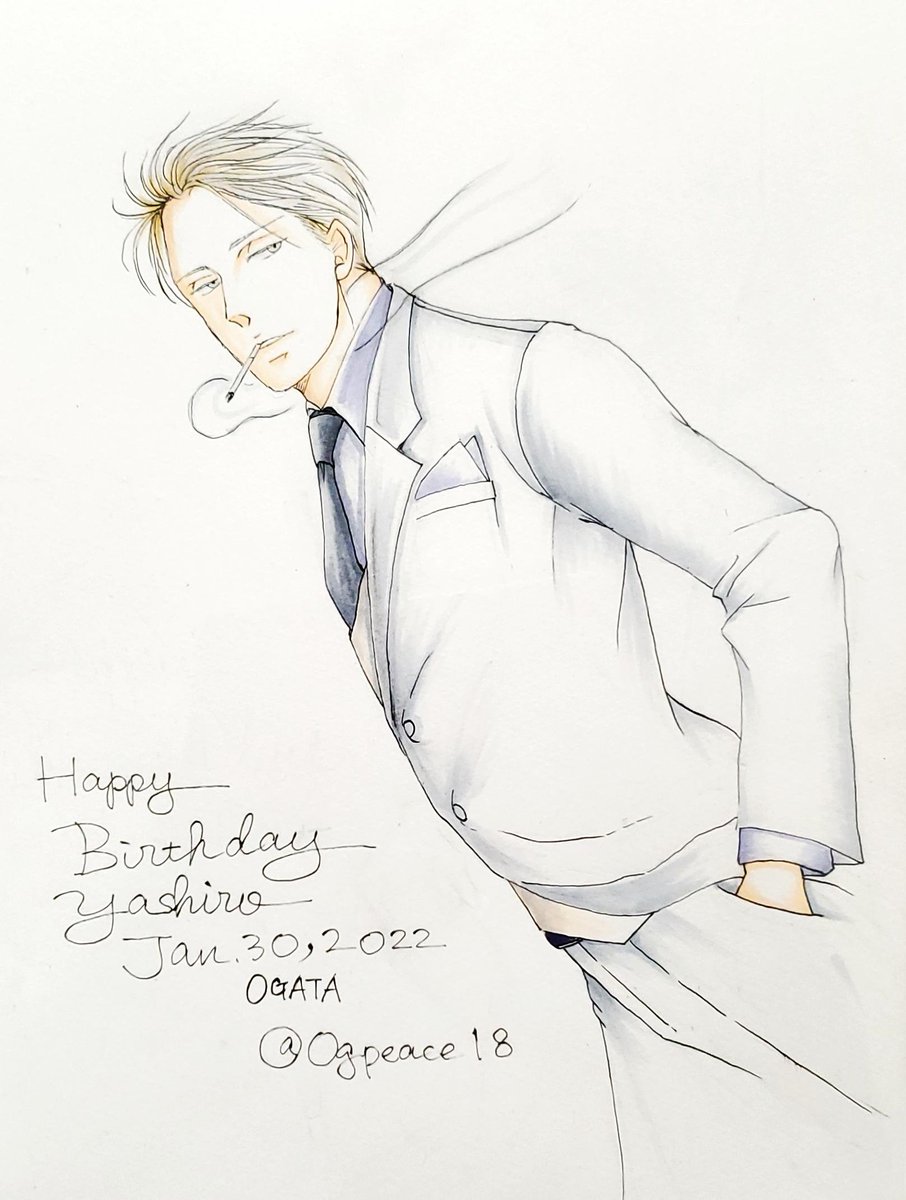 Happy
Birthday
Yashiro
Jan.30,2022
OGATA
@Ogpeace18